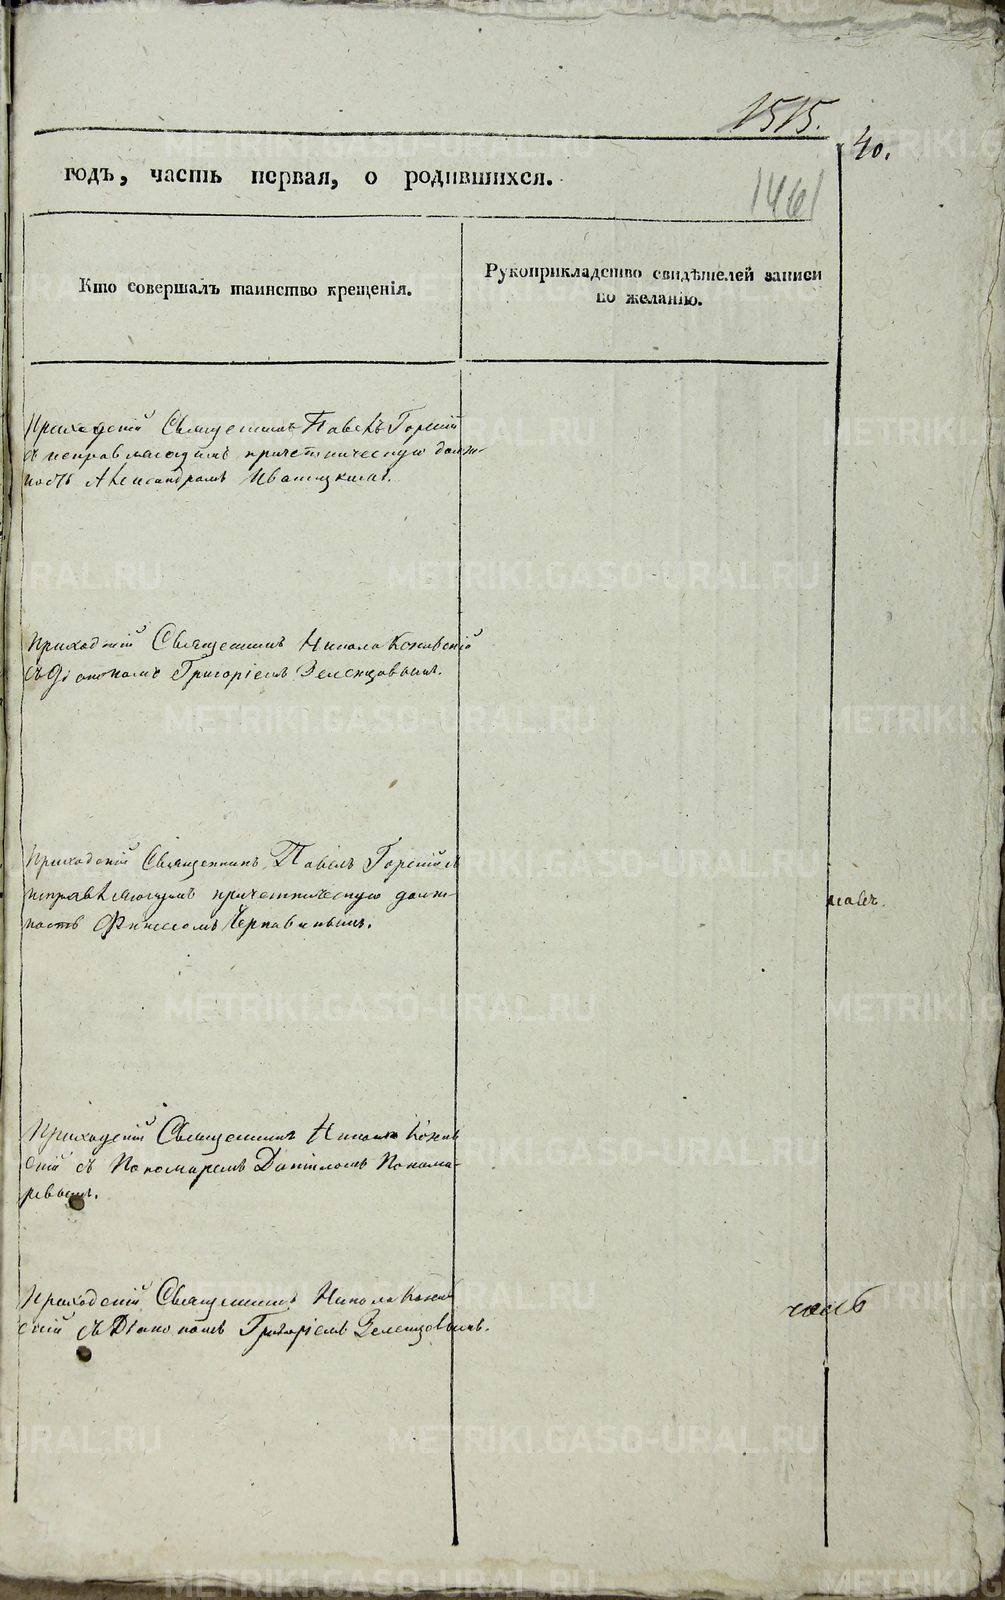 1515.
40.
годъ, часть первая, о родившихся.
1461
Кто совершалъ таинство крещенія.
Рукоприкладство свидѣтелей записи
по желанію.
Приходскій Священникъ Павелъ Горскій
съ исправляющимъ причетническую долж-
ность Александромъ
Приходскій Священникъ Никола
съ Діакономъ Григоріемъ Зеленцовымъ.
Приходскій Священникъ Павелъ Горскій съ
исправляющимъ причетническую долж-
ность Чернавинымъ.
Приходскій Священникъ Никола
скій съ Пономаремъ Даніиломъ Понома-
ревымъ.
Приходскій Священникъ Никола
скій съ Діакономъ Григоріемъ Зеленцовымъ.
METRIKI.GASO-URAL.RU